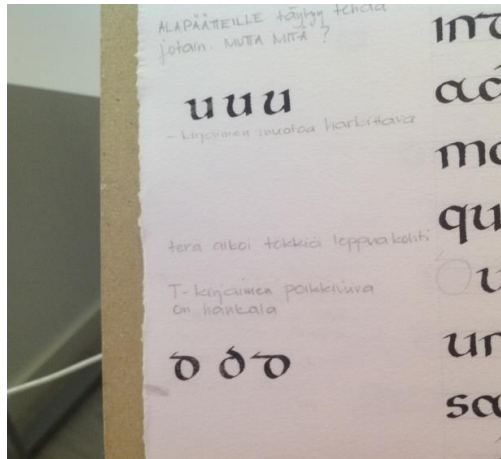 ALAPÄÄTTEILLE täytyy tehdä
jotain. MUTTA MITÄ ?
u u u
- kirjaimen muotoa harkittava
terä alkoi tökkiä loppua kohti
T-kirjaimen poikkiviiva
on hankala
d d d
int
ad
mo
qu
u
un